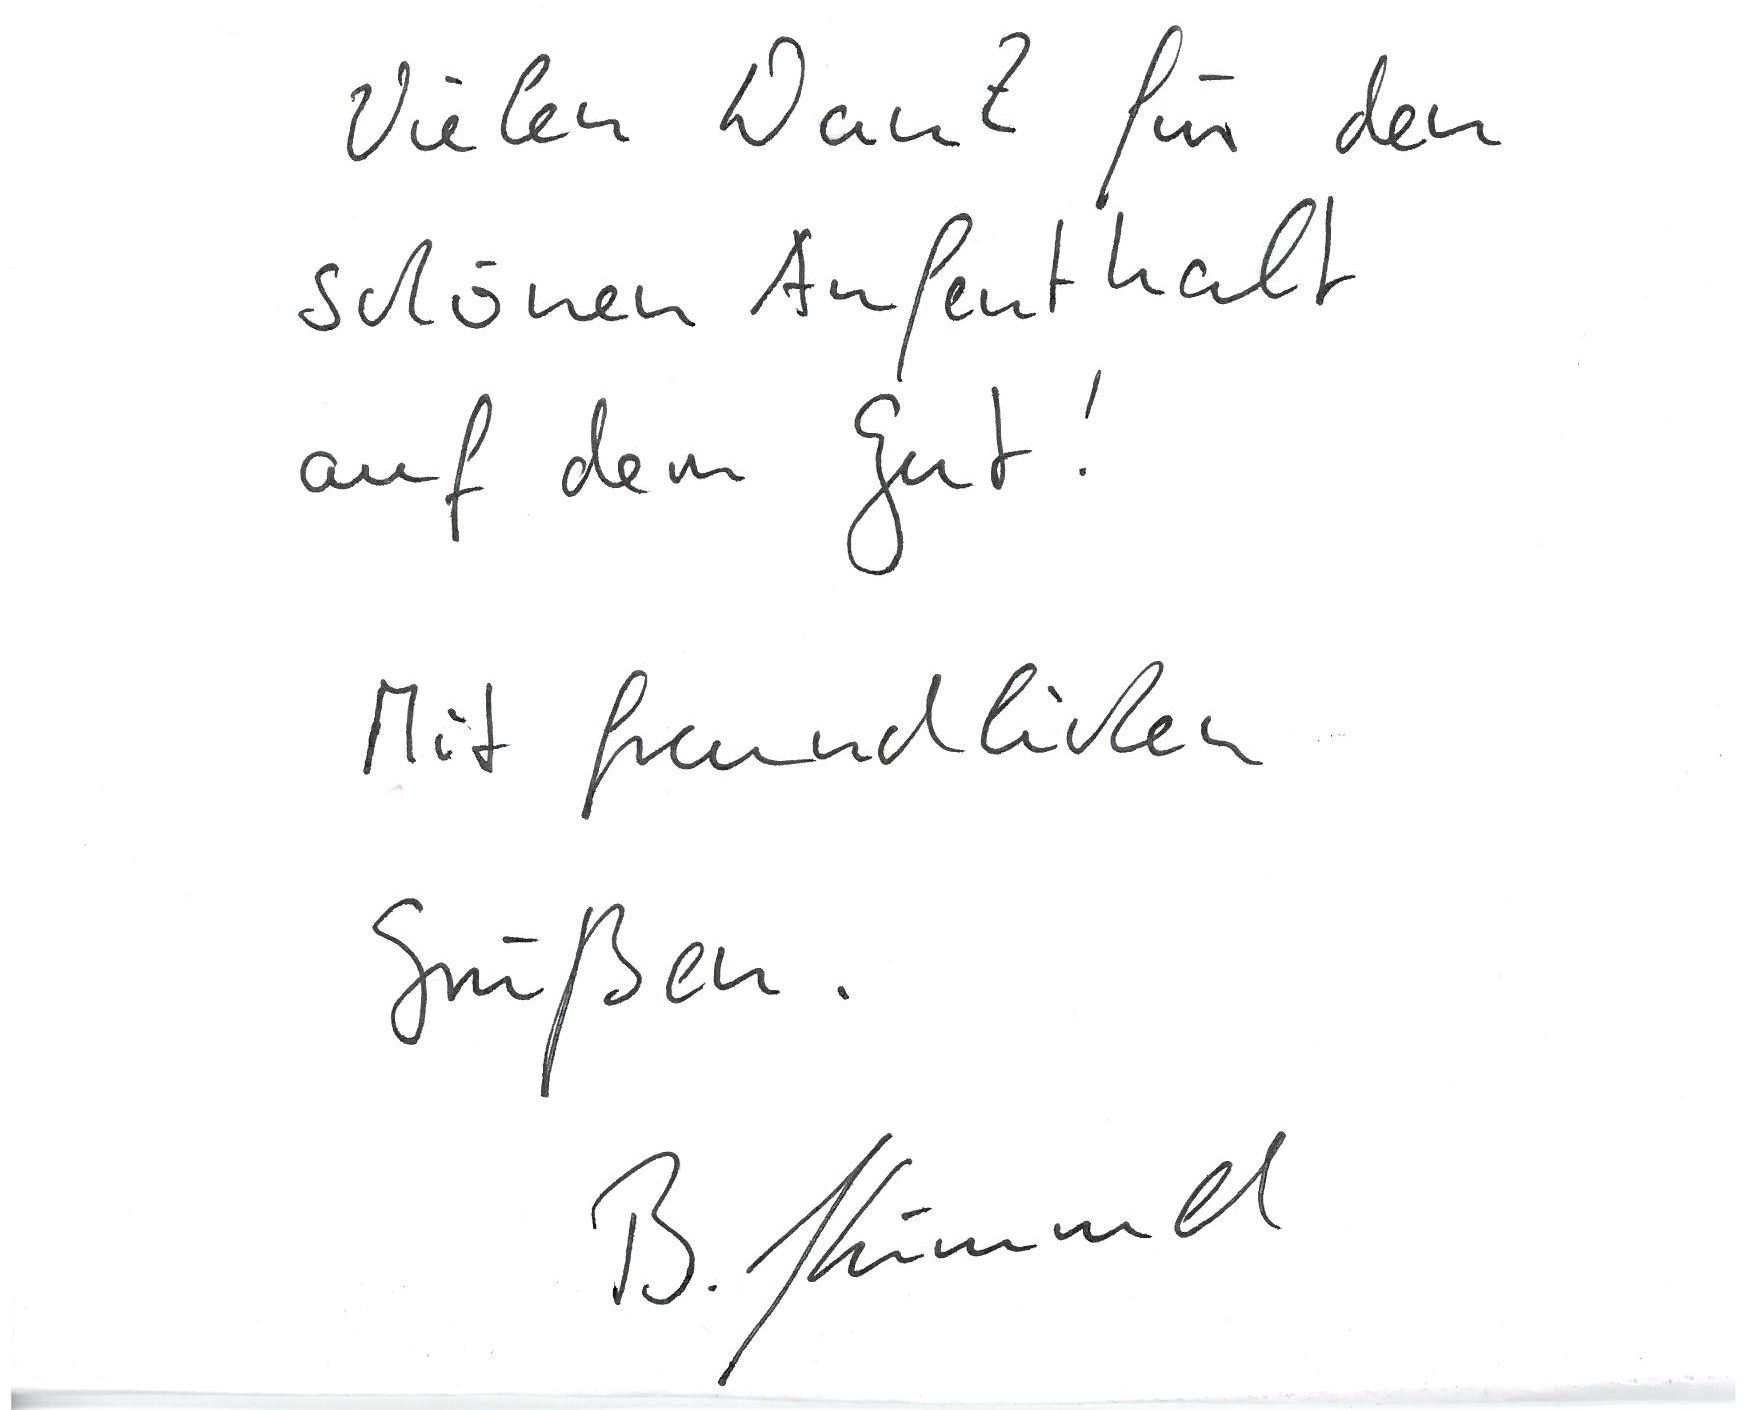 Vielen Dank für den
schönen Aufenthalt
auf dem Gut!
Mit freundlichen
Grüßen.
B.